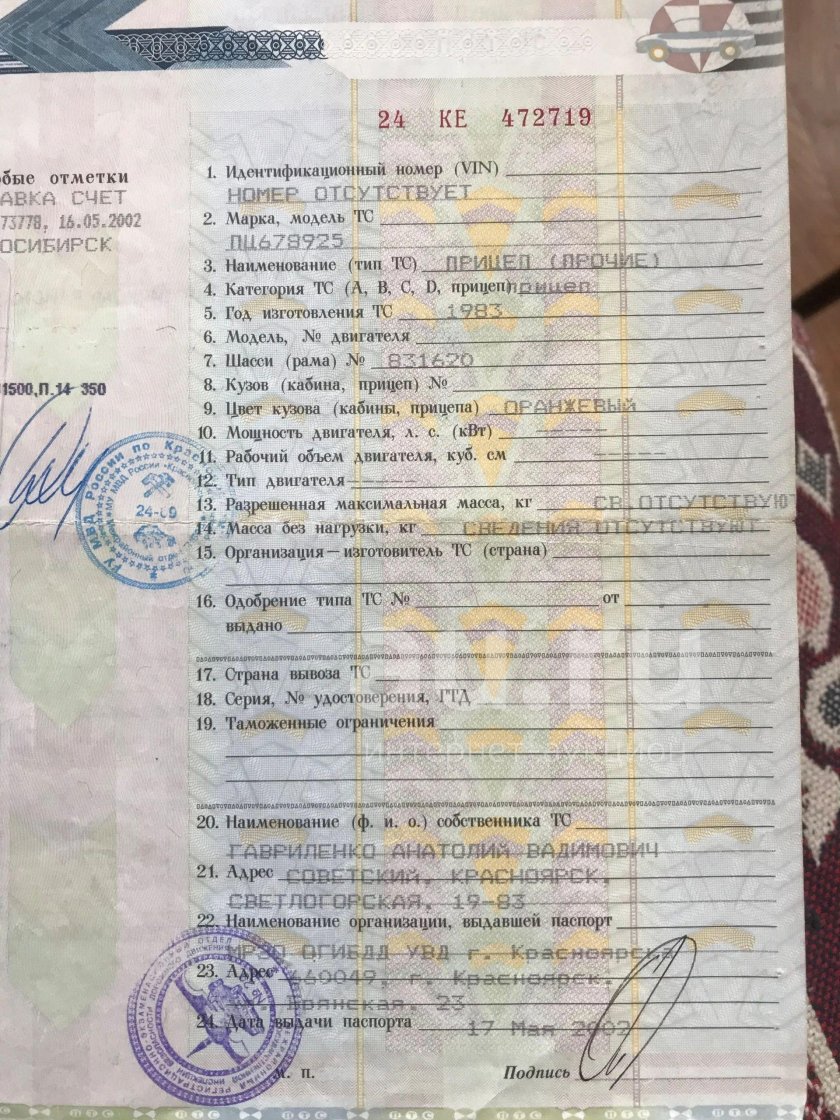 24 КЕ 472719
обые отметки
АВКА СЧЕТ
73778, 16.05.2002
ОСИБИРСК
1500,П.14 350
1. Идентификационный номер (VIN)
НОМЕР ОТСУТСТВУЕТ
2. Марка, модель ТС
ПЦ678925
3. Наименование (тип ТС) ПРИЦЕП (ПРОЧИЕ)
4. Категория ТС (A, B, C, D, прицеп) прицеп
5. Год изготовления ТС 1983
6. Модель, № двигателя
7. Шасси (рама) № 831620
8. Кузов (кабина, прицеп) №
9. Цвет кузова (кабины, прицепа) ОРАНЖЕВЫЙ
10. Мощность двигателя, л. с. (кВт) -----
11. Рабочий объем двигателя, куб. см -----
12. Тип двигателя -----
13. Разрешенная максимальная масса, кг СВ.ОТСУТСТВУЮТ
14. Масса без нагрузки, кг СВЕДЕНИЯ ОТСУТСТВУЮТ
15. Организация — изготовитель ТС (страна)
16. Одобрение типа ТС № от
выдано
17. Страна вывоза ТС
18. Серия, № удостоверения, ГТД
19. Таможенные ограничения
20. Наименование (ф. и. о.) собственника ТС
ГАВРИЛЕНКО АНАТОЛИЙ ВАДИМОВИЧ
21. Адрес СОВЕТСКИЙ, КРАСНОЯРСК,
СВЕТЛОГОРСКАЯ, 19-83
22. Наименование организации, выдавшей паспорт
МРЭО ОГИБДД УВД г. Красноярска
23. Адрес 660049, г. Красноярск,
Брянская, 23
24. Дата выдачи паспорта 17 Мая 2002
М. П. Подпись
24-09
интернет-аукцион
ПТС ПТС ПТС ПТС ПТС